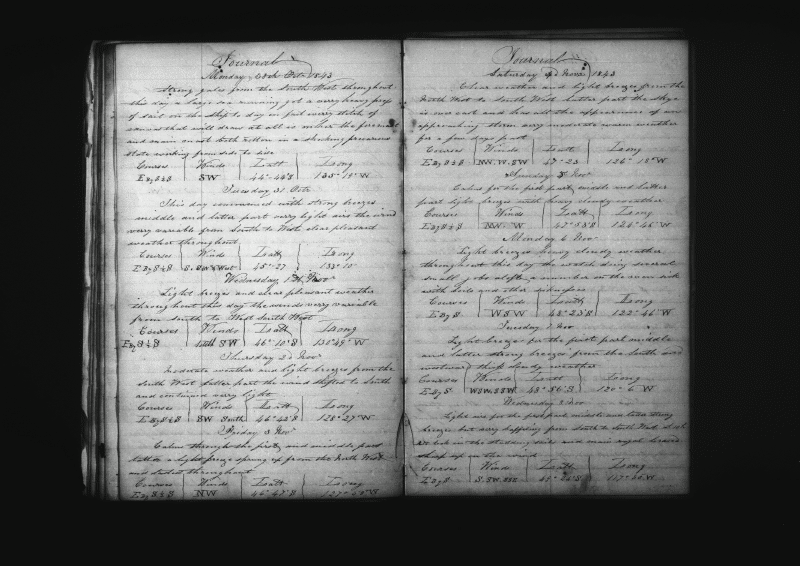 Journal
Monday 30th Oct 1843
Strong gales from the South West throughout
this day a large sea running got a carry heavy press
of sail on the ship to day in fact every stitch of
canvas that will draw at all
and main
state working from side to side
Courses Winds Latt Long
E By S ½ S SW 44-48 S 135-19 W
Tuesday 31 Octr
This day commenced with strong breezes
middle and latter part very light airs the wind
very variable from South to West clear pleasant
weather throughout
Courses Winds Latt Long
E By S ½ S S. SW & West 45-27 133-10
Wednesday 1st Novr
Light breezes and clear pleasant weather
throughout this day the winds very variable
from South to West South West
Courses Winds Latt Long
E By S ½ S SW 46-10 S 131-49 W
Thursday 2d Novr
Moderate weather and light breezes from the
South West latter part the wind shifted to South
and continued very light
Courses Winds Latt Long
E By S ½ S SW South 46-43 S 128-27 W
Friday 3 Novr
Calms through the first and middle part
latter a light breeze sprung up from the North West
and throughout
Courses Winds Latt Long
E By S ½ S NW 46-47 S 127- W
Journal
Saturday 4d Novr 1843
Clear weather and light breezes from the
North West to South West latter part the skye
is over cast and has all the appearances of an
approaching storm very moderate warm weather
for a few days past
Courses Winds Latt Long
E By S ½ S N.W. SW 47-23 126-18 W
Sunday 5 Novr
Calms for the first part middle and latter
part light breezes with heavy cloudy weather
Courses Winds Latt Long
E By S ½ S NW. W 47-53 S 124-46 W
Monday 6 Novr
Light breezes heavy cloudy weather
throughout the day the watch doing several
small jobs aloft a number on the sick list
with boils and other sickness
Courses Winds Latt Long
E By S WSW 48-23 S 122-44 W
Tuesday 7 Novr
Light breezes for the first part middle
and latter strong breezes from the South and
westward thick cloudy weather
Courses Winds Latt Long
E By S WSW. SSW 48-56 S 120-6 W
Wednesday 8 Novr
Light airs for the first part middle and latter strong
breezes but very baffling from South to South West
took in the studding sails and main royal braced
sharp up on the wind
Courses Winds Latt Long
E By S S. SW. SSE 49-24 S 117-40 W